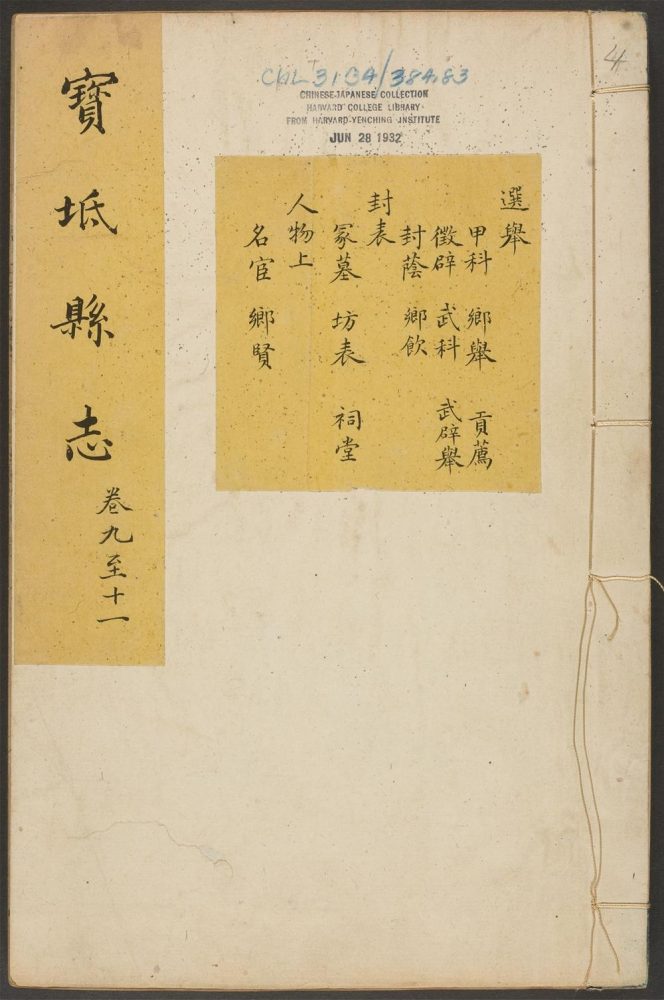 寶坻縣志
卷九至十一
CHL 3164/384.83
CHINESE-JAPANESE COLLECTION
HARVARD COLLEGE LIBRARY
FROM HARVARD-YENCHING INSTITUTE
JUN 28 1932
4
選舉
甲科 鄉舉 貢薦
徵辟 武科 武辟舉
封蔭 鄉飲
封表
冢墓 坊表 祠堂
人物上
名宦 鄉賢